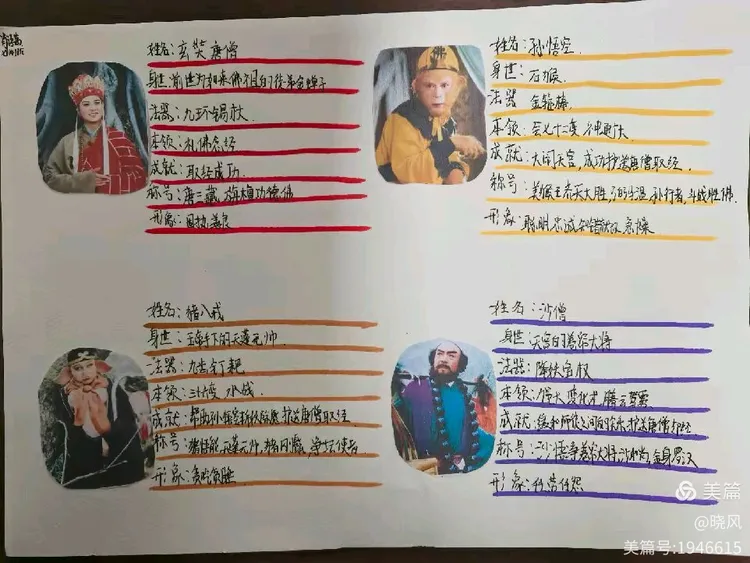 姓名:玄奘唐僧
身世:前世为如来佛祖的二徒弟金蝉子
法器:九环锡杖
本领:礼佛念经
成就:取经成功
称号:唐三藏 旃檀功德佛
形象:固执善良
姓名:孙悟空
身世:石猴
法器:金箍棒
本领:会七十二变
成就:大闹天宫,成功护送唐僧取经
称号:美猴王 齐天大圣 孙行者,斗战胜佛
形象:聪明忠诚
姓名:猪八戒
身世:王母手下的天蓬元帅
法器:九齿钉耙
本领:三十六变 水战
成就:护送唐僧取经
称号:猪悟能 天蓬元帅 净坛使者
形象:贪吃
姓名:沙僧
身世:天宫的卷帘大将
法器:降妖宝杖
本领:变化术 腾云驾雾
成就:缓和师徒之间的 护送唐僧取经
称号:沙悟净 卷帘大将 沙和尚 金身罗汉
形象:任劳任怨
美篇
@晓风
美篇号:1946615